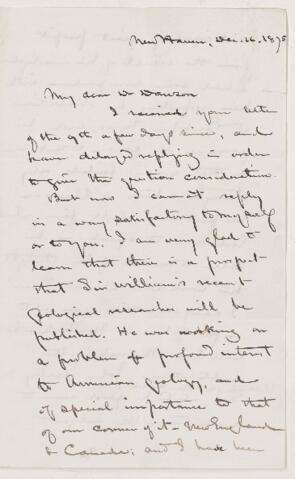 New Haven, Dec. 16. 1875
My dear Dr Dawson
I received your letter
of the 9th a few days since, and
have delayed replying in order
to give the question consideration.
But now I cannot reply
in a way satisfactory to myself
or to you. I am very glad to
learn that there is a prospect
that Sir William's recent
geological researches will be
published. He was working on
a problem of profound interest
to American geology, and
of special importance to that
of our corner of it - New England
& Canada; and I have been